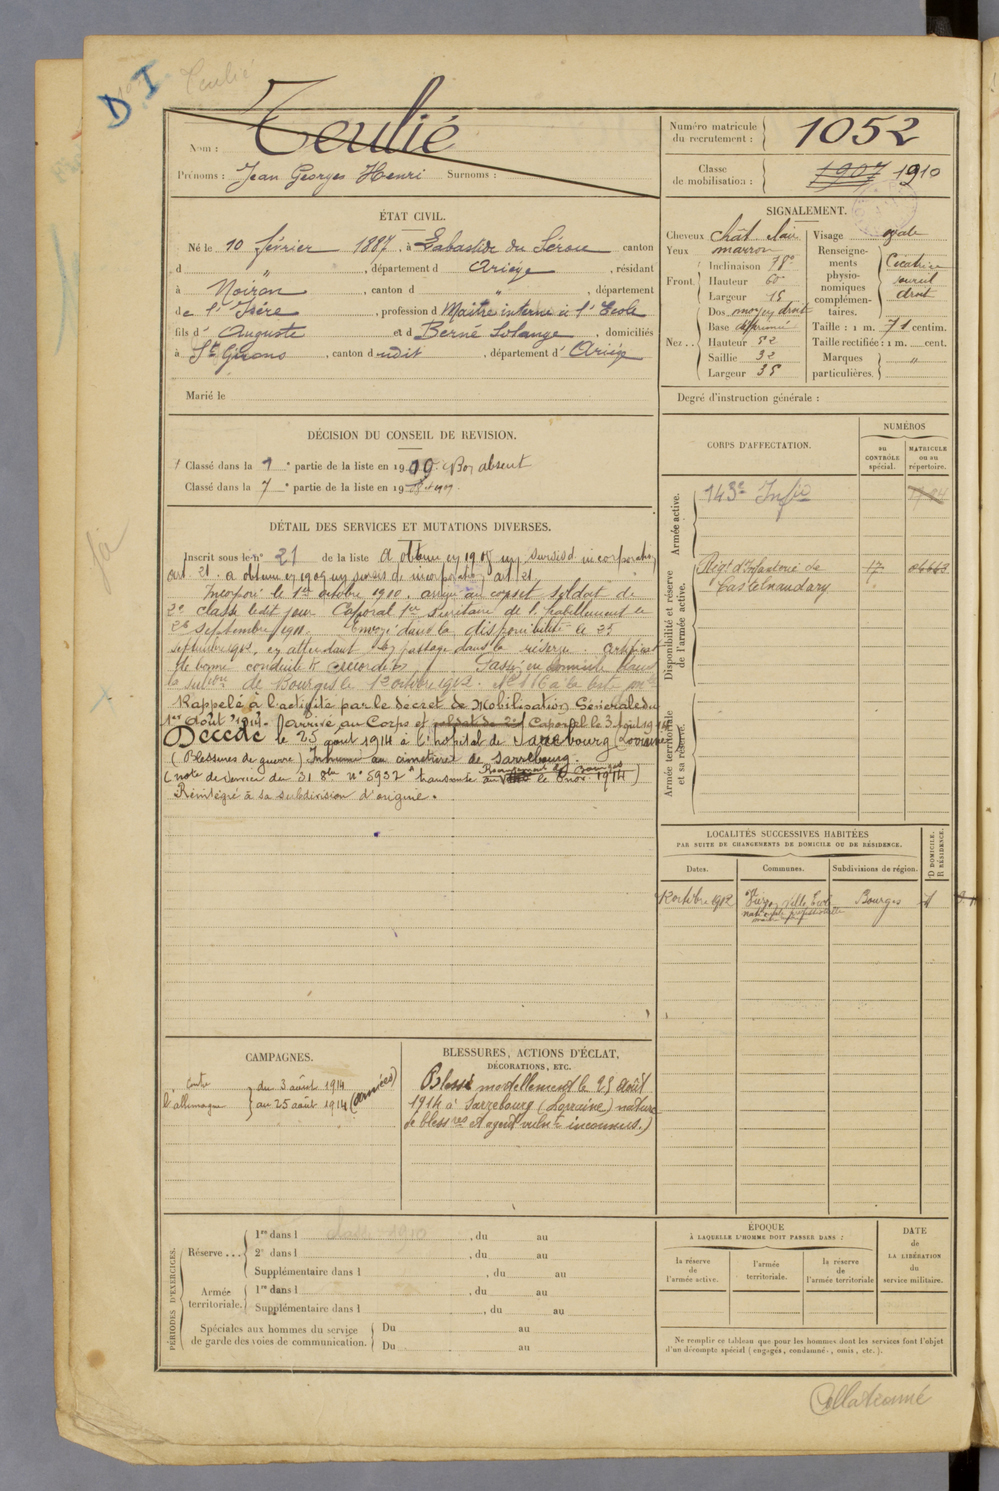 D I
Teulié
Nom : Teulié
Prénoms : Jean Georges Henri Surnoms :
Numéro matricule du recrutement : 1052
Classe de mobilisation : 1907 1910
ÉTAT CIVIL.
Né le 10 février 1887, à Labastide du Sérou canton
d " , département d Ariège , résidant
à Noiron , canton d " , département
de l'Isère , profession d Maître interne à l'Ecole
fils d' Auguste et d Berné Solange , domiciliés
à St Girons , canton dudit , département d' Ariège
Marié le
SIGNALEMENT.
Cheveux chât clair
Yeux marron
Front Inclinaison
Hauteur
Largeur 15
Nez Dos moyen droit
Base déprimé
Hauteur 52
Saillie 32
Largeur 35
Visage ovale
Renseignements physionomiques complémentaires. Cicatrice sourcil droit
Taille : 1 m. 71 centim.
Taille rectifiée : 1 m. cent.
Marques particulières. "
Degré d'instruction générale :
DÉCISION DU CONSEIL DE REVISION.
Classé dans la 1e partie de la liste en 1909. Bon absent
Classé dans la 7e partie de la liste en 19
DÉTAIL DES SERVICES ET MUTATIONS DIVERSES.
Inscrit sous le n° 21 de la liste A obtenu en 1908 un sursis d'incorporation
art. 21. a obtenu en 1909 un sursis d'incorporation art 21
Incorporé le 1er octobre 1910. arrivé au corps et soldat de
2e classe ledit jour. Caporal 1er secrétaire de l'habillement le
septembre 1911. Envoyé dans la disponibilité le 25
septembre 1912, en attendant son passage dans la réserve. Certificat
de bonne conduite accordé. Passé en domicile dans
la subon de Bourges le 12 octobre 1912.
Rappelé à l'activité par le décret de Mobilisation Générale du
1er Août 1914. Arrivé au Corps et soldat de 2e Caporal le 3 Août 1914
Décédé le 25 août 1914 à l'hôpital de Sarrebourg (Lorraine)
(Blessures de guerre) Inhumé au cimetière de Sarrebourg.
(note de service du 31 8bre n° 8932 transmise au Recrutement de Bourges le 6 nov. 1914)
Réintégré à sa subdivision d'origine.
CORPS D'AFFECTATION.
NUMÉROS
au CONTRÔLE spécial.
MATRICULE ou au répertoire.
Armée active.
143e Infie
Disponibilité et réserve de l'armée active.
Régt d'Infanterie de 17
Castelnaudary
Armée territoriale et sa réserve.
LOCALITÉS SUCCESSIVES HABITÉES
PAR SUITE DE CHANGEMENTS DE DOMICILE OU DE RÉSIDENCE.
Dates. Communes. Subdivisions de région. D DOMICILE. R RÉSIDENCE.
12 octobre 1912 Vierzon Ville Ecole nationale professionnelle Bourges
CAMPAGNES.
Contre l'allemagne du 3 août 1914
au 25 août 1914 (armées)
BLESSURES, ACTIONS D'ÉCLAT,
DÉCORATIONS, ETC.
Blessé mortellement le 25 Août
1914 à Sarrebourg (Lorraine) nature
de blessres et agent vulnt inconnus.)
PÉRIODES D'EXERCICES.
Réserve
1re dans l classe 1910 , du au
2e dans l , du au
Supplémentaire dans l , du au
Armée territoriale.
1re dans l , du au
Supplémentaire dans l , du au
Spéciales aux hommes du service de garde des voies de communication.
Du au
Du au
ÉPOQUE
À LAQUELLE L'HOMME DOIT PASSER DANS :
la réserve de l'armée active.
l'armée territoriale.
la réserve de l'armée territoriale
DATE de LA LIBÉRATION du service militaire.
Ne remplir ce tableau que pour les hommes dont les services font l'objet
d'un décompte spécial (engagés, condamnés, omis, etc.).
Collationné